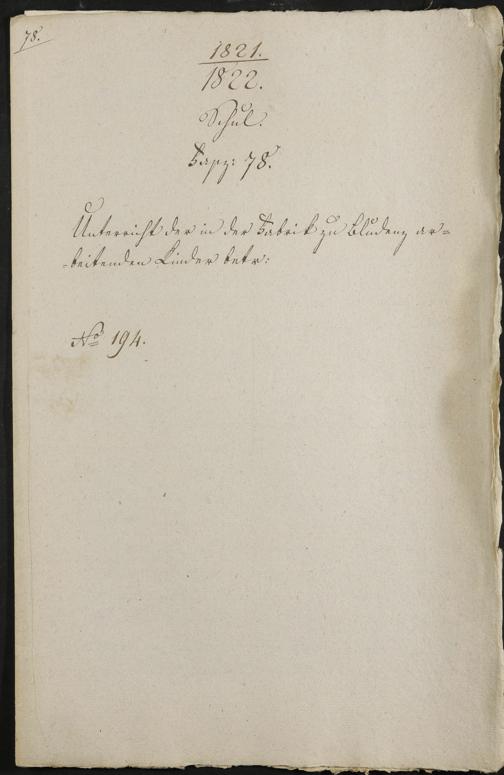 78.
1821.
1822.
Schul.
Fasz: 78.
Unterricht der in der Fabrik zu Bludenz ar=
=beitenden Kinder betr:
No 194.